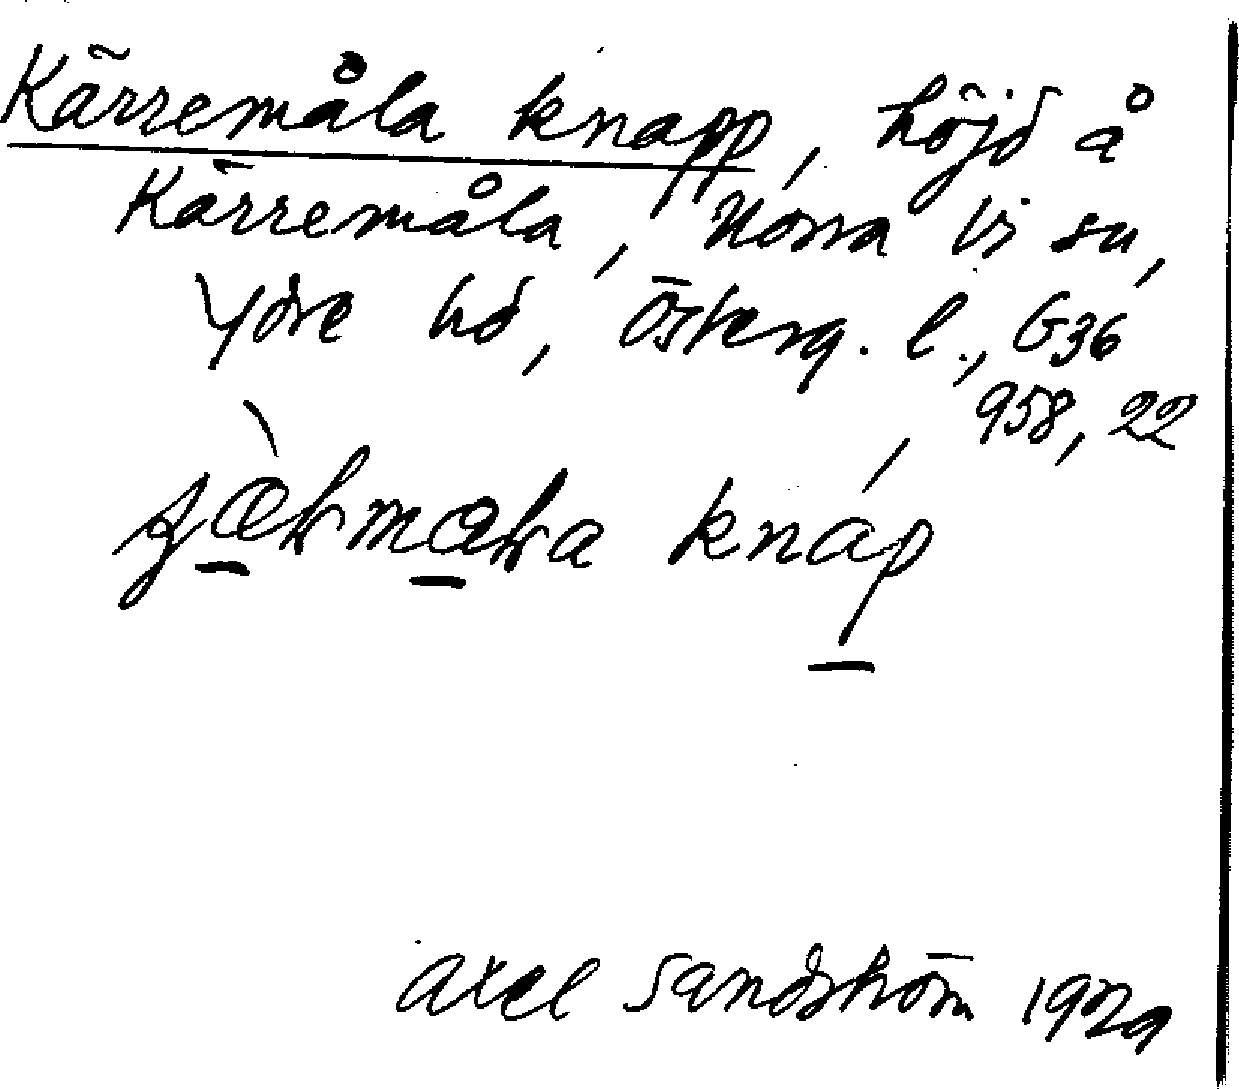 Kärremåla knapp, höjd å
Kärremåla, Norra Vi sn,
Ydre hd, Österg. l., G36
958, 22
knáp
Axel Sandström